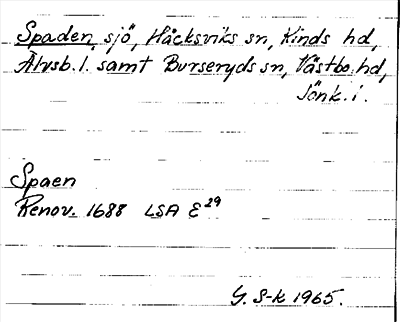 Spaden, sjö, Håcksviks sn, Kinds hd,
Älvsb. l. samt Burseryds sn, Västbo hd,
Jönk. l.
Spaen
Renov. 1688 LSA E 29
G. S-k 1965.